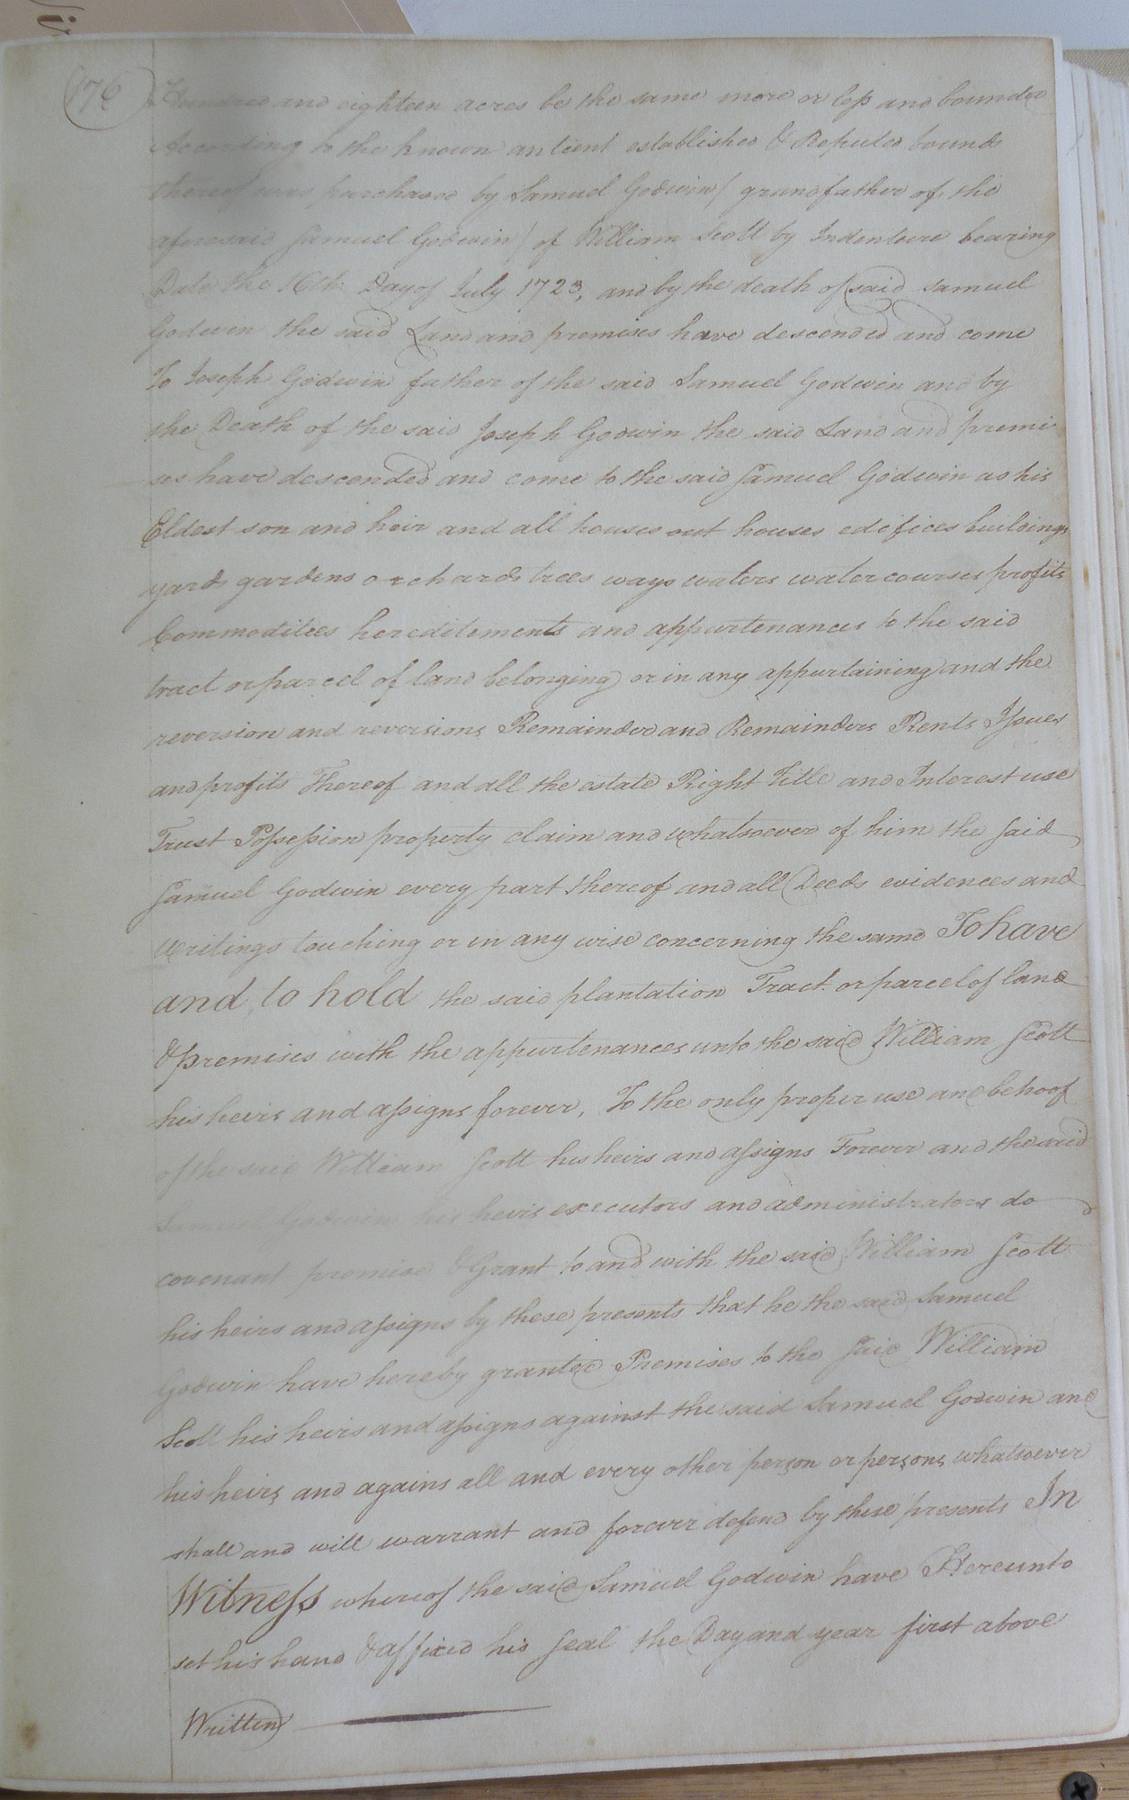 176
Hundred and eighteen acres be the same more or less and bounded
According to the known antient established & Reputed bounds
thereof was purchased by Samuel Godwin / grandfather of the
aforesaid Samuel Godwin / of William Scott by Indenture bearing
Date the 16th Day of July 1723, and by the death of said Samuel
Godwin the said Land and premises have descended and come
To Joseph Godwin father of the said Samuel Godwin and by
the Death of the said Joseph Godwin the said Land and premi
ses have descended and come to the said Samuel Godwin as his
Eldest son and heir and all houses out houses edifices buildings
yards gardens orchards trees ways waters watercourses profits
Commoditees hereditements and appurtenances to the said
tract or parcel of land belonging or in any appurtaining and the
reversion and reversions Remainder and Remainders Rents Issues
and profits Thereof and all the estate Right Title and Interest use
Trust Possession property claim and whatsoever of him the said
Samuel Godwin every part thereof and all Deeds evidences and
Writings touching or in any wise concerning the same To have
and to hold the said plantation Tract or parcel of land
& premises with the appurtenances unto the said William Scott
his heirs and assigns forever, To the only proper use and behoof
of the said William Scott his heirs and assigns Forever and the said
Samuel Godwin his heirs executors and administrators do
covenant promise & Grant to and with the said William Scott
his heirs and assigns by these presents that he the said Samuel
Godwin have hereby granted Premises to the said William
Scott his heirs and assigns against the said Samuel Godwin and
his heirs and agains all and every other person or persons whatsoever
shall and will warrant and forever defend by these presents In
Witness whereof the said Samuel Godwin have Hereunto
set his hand & affixed his Seal the Day and year first above
Written